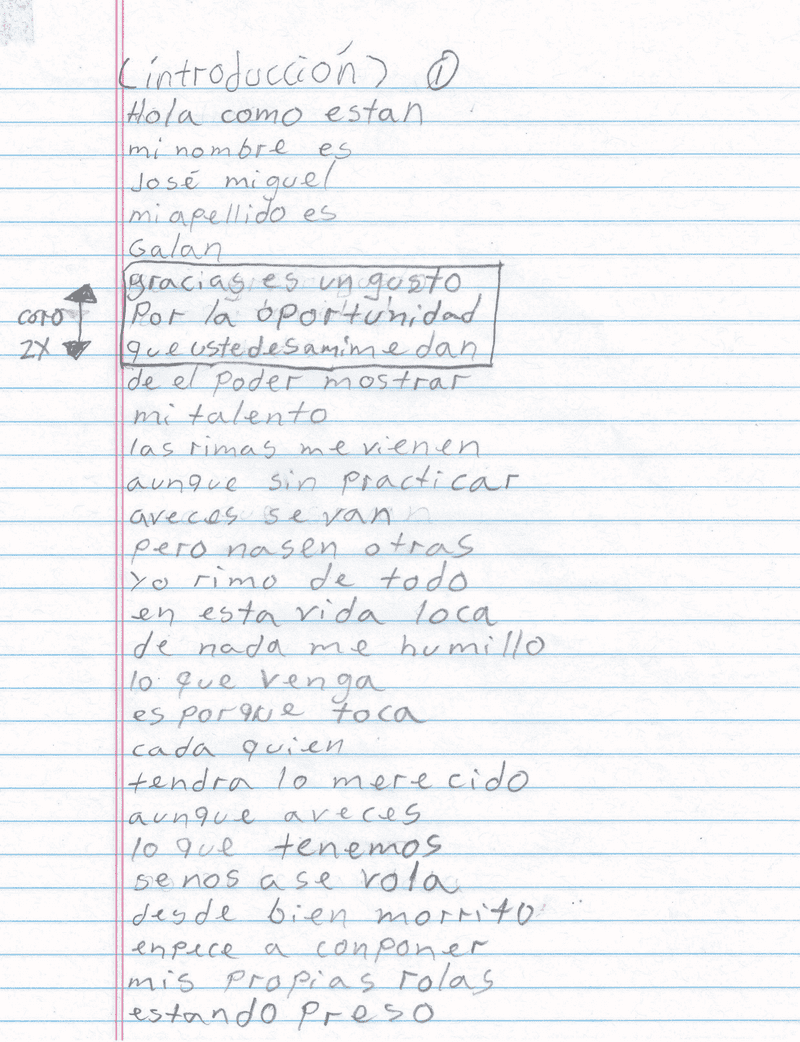 (introducción) 1
Hola como estan
mi nombre es
José miguel
mi apellido es
Galan
gracias es un gusto
Por la oportunidad
que ustedes a mi me dan
coro
2X
de el poder mostrar
mi talento
las rimas me vienen
aunque sin practicar
aveces se van
pero nasen otras
yo rimo de todo
en esta vida loca
de nada me humillo
lo que venga
es porque toca
cada quien
tendra lo merecido
aunque aveces
lo que tenemos
se nos ase vola
desde bien morrito
enpece a conponer
mis propias rolas
estando preso